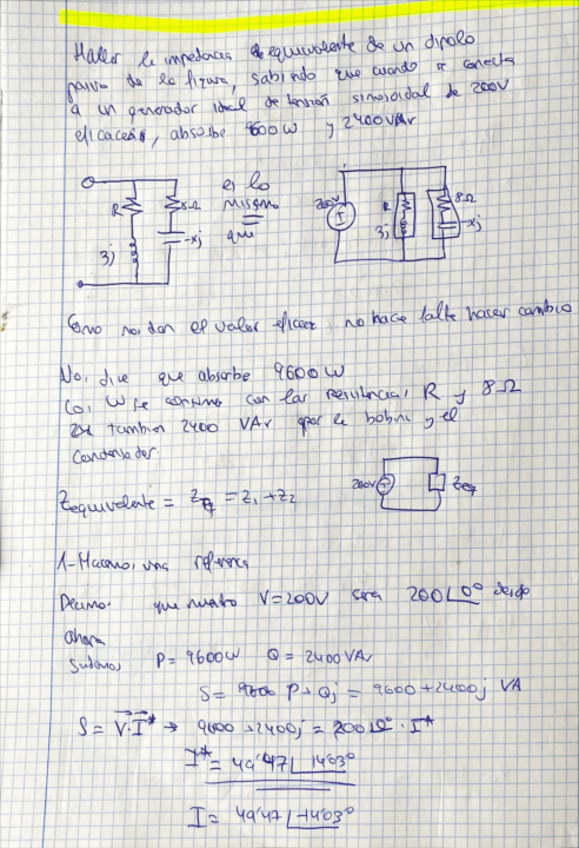 Hallar la impedancia equivalente de un dipolo
pasivo de la figura, sabiendo que cuando se conecta
a un generador ideal de tensión sinusoidal de 200V
eficaces, absorbe 9600W y 2400VAr
R
8Ω
3j
-xj
es lo
mismo
que
200V
R
3j
8Ω
-xj
Como nos dan el valor eficaz no hace falta hacer cambio
Nos dice que absorbe 9600W
Los W se consumen con las resistencias R y 8Ω
también 2400 VAr por la bobina y el
Condensador.
Zequivalente = Z = Z1 + Z2
200V
Zeq
1-Hacemos una referencia
Decimos que nuestro V=200V será 200∠0°
ahora
Sabemos P= 9600W Q= 2400VAr
S= P+Qj = 9600+2400j VA
S= V·I* → 9600+2400j = 200∠0°·I*
I*= 49'47∠14'03°
I= 49'47∠-14'03°